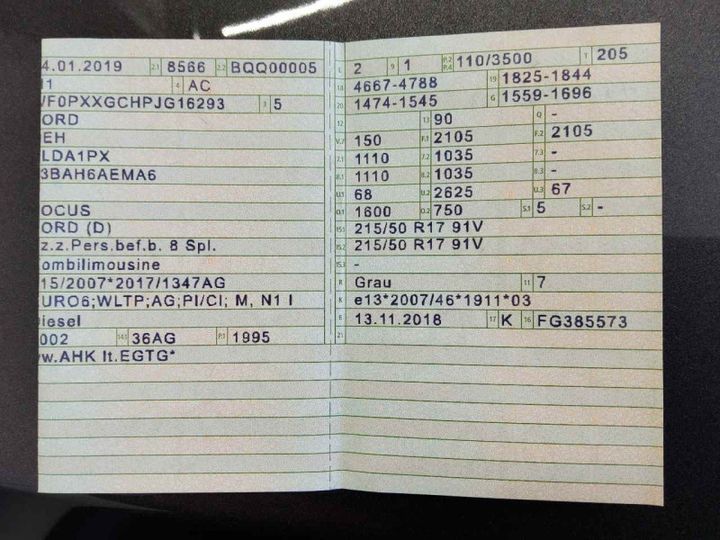 4.01.2019 2.1 8566 2.2 BQQ00005
1 4 AC
F0PXXGCHPJG16293 3 5
ORD
EH
LDA1PX
3BAH6AEMA6
OCUS
ORD (D)
z.z.Pers.bef.b. 8 Spl.
ombilimousine
15/2007*2017/1347AG
URO6;WLTP;AG;PI/CI; M, N1 I
iesel
002 14.1 36AG P.1 1995
w.AHK lt.EGTG*
L 2 9 1 P.2 P.4 110/3500 T 205
18 4667-4788 19 1825-1844
20 1474-1545 G 1559-1696
12 13 90 Q -
V.7 150 F.1 2105 F.2 2105
7.1 1110 7.2 1035 7.3 -
8.1 1110 8.2 1035 8.3 -
U.1 68 U.2 2625 U.3 67
O.1 1600 O.2 750 S.1 5 S.2 -
15.1 215/50 R17 91V
15.2 215/50 R17 91V
15.3 -
R Grau 11 7
K e13*2007/46*1911*03
6 13.11.2018 17 K 16 FG385573
21